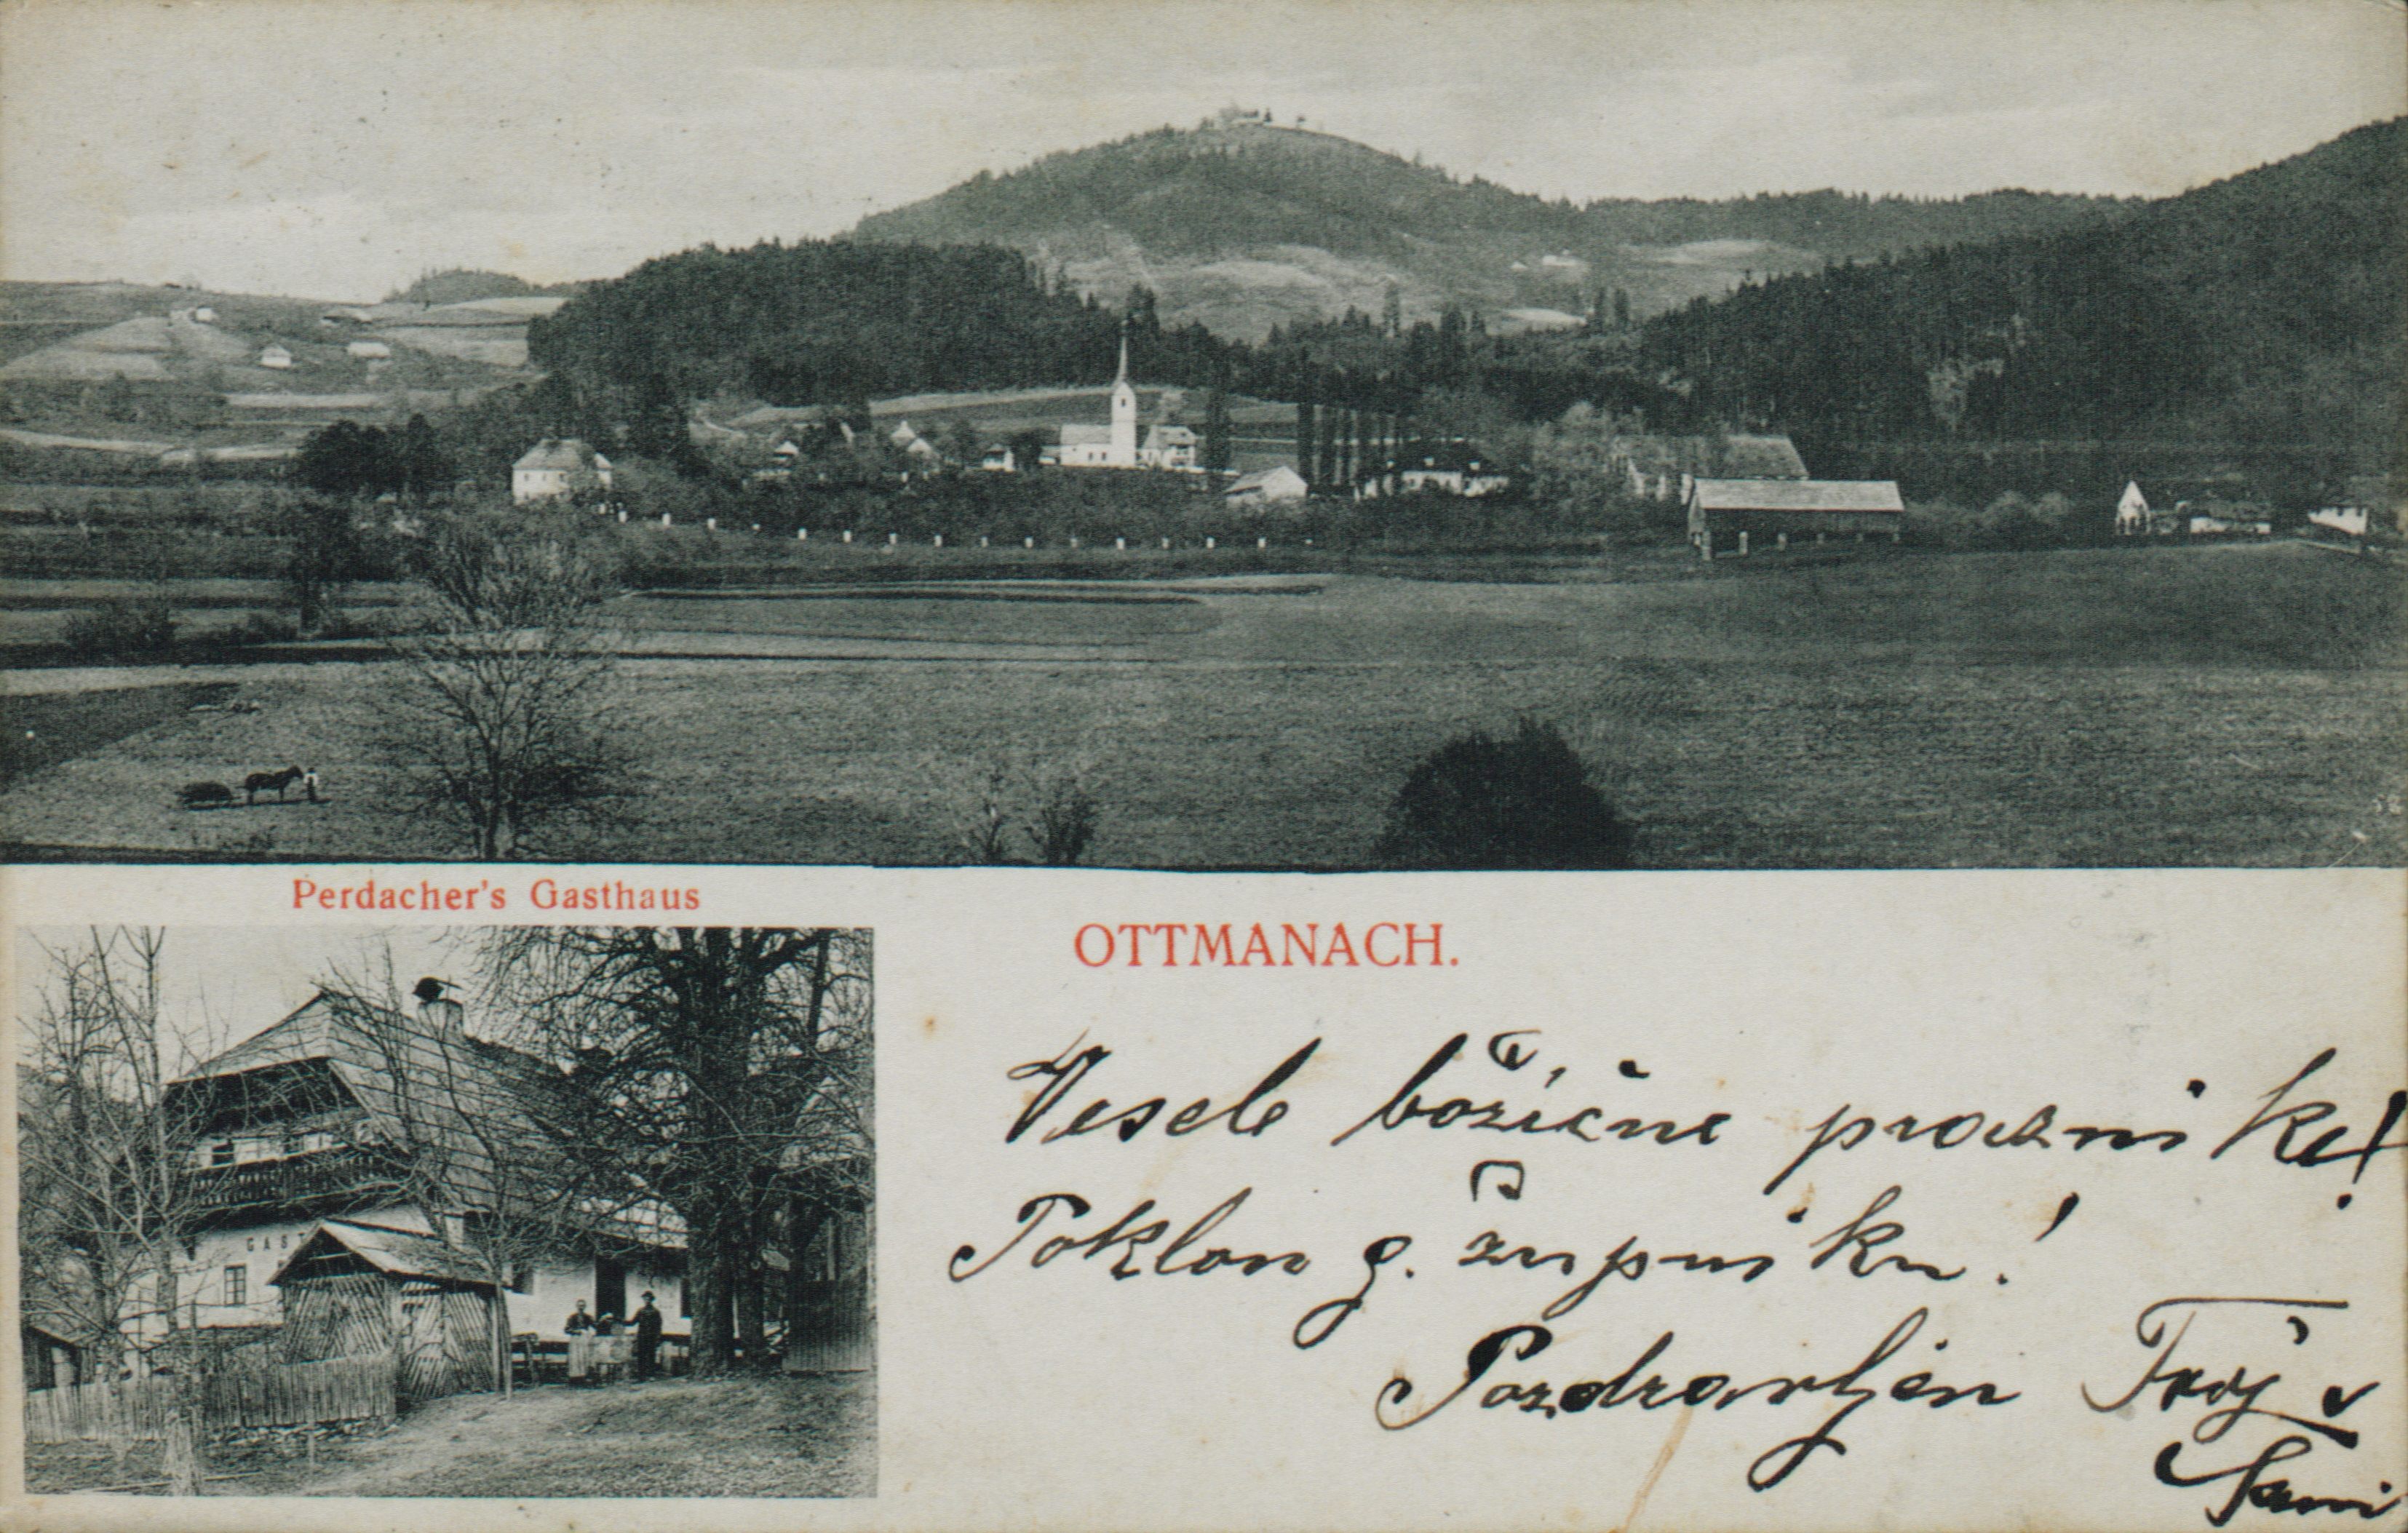 Perdacher's Gasthaus
OTTMANACH.
GAST
Vesele božične praznike!
Poklon g. župniku!
Pozdravljen Tvoj